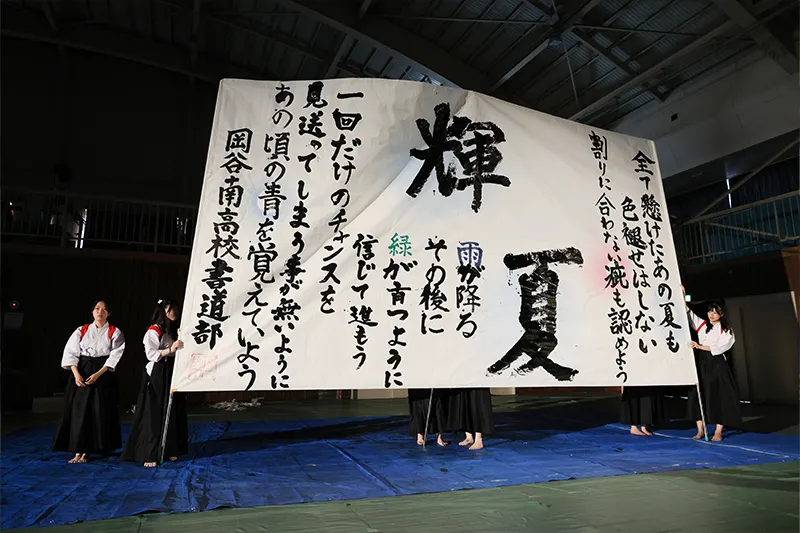 全て懸けたあの夏も
色褪せはしない
割りに合わない疵も認めよう
輝
夏
雨が降る
その後に
緑が育つように
信じて進もう
一回だけのチャンスを
見送ってしまう事が無いように
あの頃の青を覚えていよう
岡谷南高校書道部